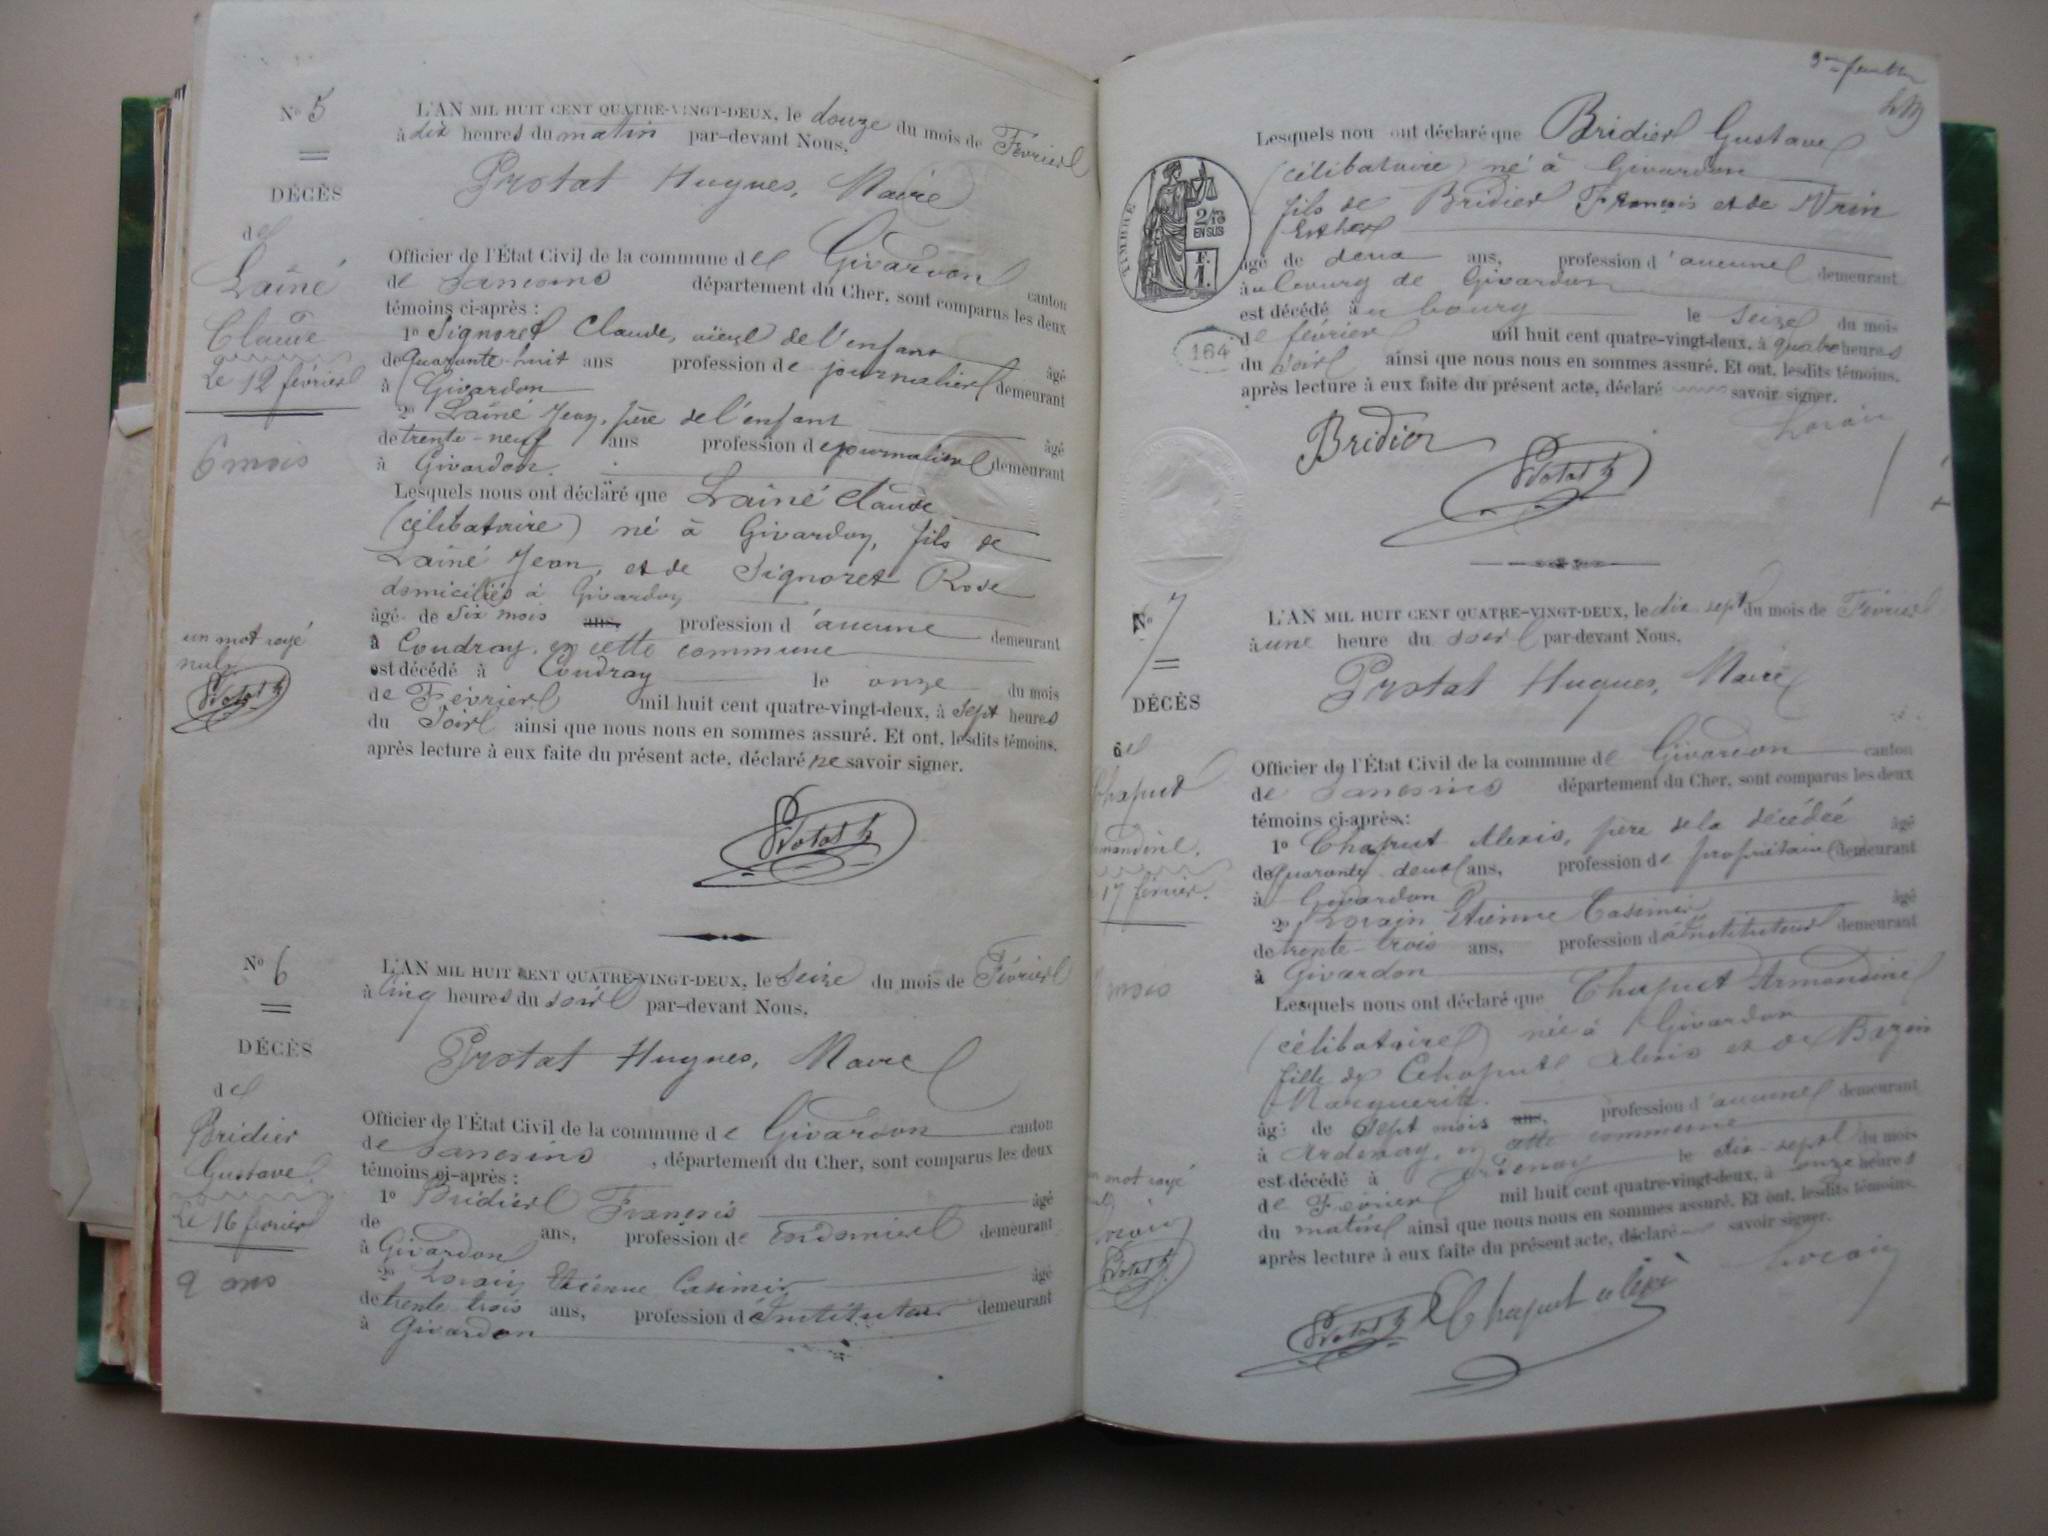 No 5
DÉCÈS
de
Lainé
Claude
Le 12 février
6 mois
L'AN MIL HUIT CENT QUATRE-VINGT-DEUX, le douze du mois de Février
à dix heures du matin par-devant Nous,
Protat Hugues, Maire
Officier de l'État Civil de la commune de Givardon canton
de Sancoins département du Cher, sont comparus les deux
témoins ci-après :
1o Signoret Claude, aïeul de l'enfant âgé
de quarante-huit ans profession de journalier demeurant
à Givardon
2o Lainé Jean, père de l'enfant âgé
de trente-neuf ans profession de journalier demeurant
à Givardon.
Lesquels nous ont déclaré que Lainé Claude
(célibataire) né à Givardon, fils de
Lainé Jean, et de Signoret Rose
domiciliés à Givardon
âgé de Six mois ans, profession d'aucune demeurant
à Coudray, en cette commune
est décédé à Coudray le onze du mois
de Février mil huit cent quatre-vingt-deux, à Sept heures
du Soir ainsi que nous nous en sommes assuré. Et ont, lesdits témoins,
après lecture à eux faite du présent acte, déclaré ne savoir signer.
un mot rayé
nul
Protat h
Protat h
No 6
DÉCÈS
de
Bridier
Gustave
Le 16 février
2 ans
L'AN MIL HUIT CENT QUATRE-VINGT-DEUX, le Seize du mois de Février
à Cinq heures du soir par-devant Nous,
Protat Hugues, Maire
Officier de l'État Civil de la commune de Givardon canton
de Sancoins, département du Cher, sont comparus les deux
témoins ci-après :
1o Bridier François âgé
de ans, profession de demeurant
à Givardon
2o Lorain Etienne Casimir âgé
de trente trois ans, profession d'Instituteur demeurant
à Givardon
3me feuillet
Lesquels nou ont déclaré que Bridier Gustave
(célibataire) né à Givardon
fils de Bridier François et de
Esther
âgé de deux ans, profession d'aucune demeurant
au bourg de Givardon
est décédé au bourg le Seize du mois
de février mil huit cent quatre-vingt-deux, à quatre heures
du soir ainsi que nous nous en sommes assuré. Et ont, lesdits témoins,
après lecture à eux faite du présent acte, déclaré savoir signer.
TIMBRE
2/10
EN SUS
F.
1.
164
Lorain
Bridier
Protat h
No 7
DÉCÈS
de
Chaput
mandine.
17 février.
mois
L'AN MIL HUIT CENT QUATRE-VINGT-DEUX, le dix sept du mois de Février
à une heure du soir par-devant Nous,
Protat Hugues, Maire
Officier de l'État Civil de la commune de Givardon canton
de Sancoins département du Cher, sont comparus les deux
témoins ci-après :
1o Chaput Alexis, père de la décédée âgé
de quarante deux ans, profession de propriétaire demeurant
à Givardon
2o Lorain Etienne Casimir âgé
de trente-trois ans, profession d'Instituteur demeurant
à Givardon
Lesquels nous ont déclaré que Chaput Armandine
(célibataire) née à Givardon
fille de Chaput Alexis et de Bazin
Marguerite.
âgé de Sept mois ans, profession d'aucune demeurant
à Ardenay, en cette commune
est décédé à Ardenay le dix-sept du mois
de Février mil huit cent quatre-vingt-deux, à onze heures
du matin ainsi que nous nous en sommes assuré. Et ont, lesdits témoins,
après lecture à eux faite du présent acte, déclaré savoir signer.
mot rayé
Protat h
Lorain
Protat h Chaput alexi